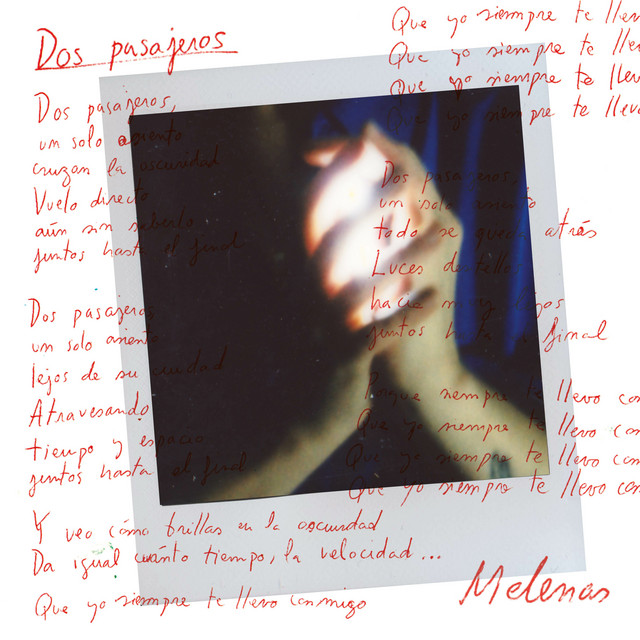 Dos pasajeros
Dos pasajeros,
un solo asiento
cruzan la oscuridad
Vuelo directo
aún sin saberlo
juntos hasta el final
Dos pasajeros
un solo asiento
lejos de su ciudad
Atravesando
tiempo y espacio
juntos hasta el final
Y veo cómo brillas en la oscuridad
Da igual cuánto tiempo, la velocidad...
Que yo siempre te llevo conmigo
Que yo siempre te llev
Que yo siempre te llev
Que yo siempre te llev
Que yo siempre te llev
Dos pasajeros,
un solo asiento
todo se queda atrás
Luces destello
hacia muy lejos
juntos hasta el final
Porque siempre te llevo con
Que yo siempre te llevo con
Que yo siempre te llevo con
Que yo siempre te llevo con
Melenas